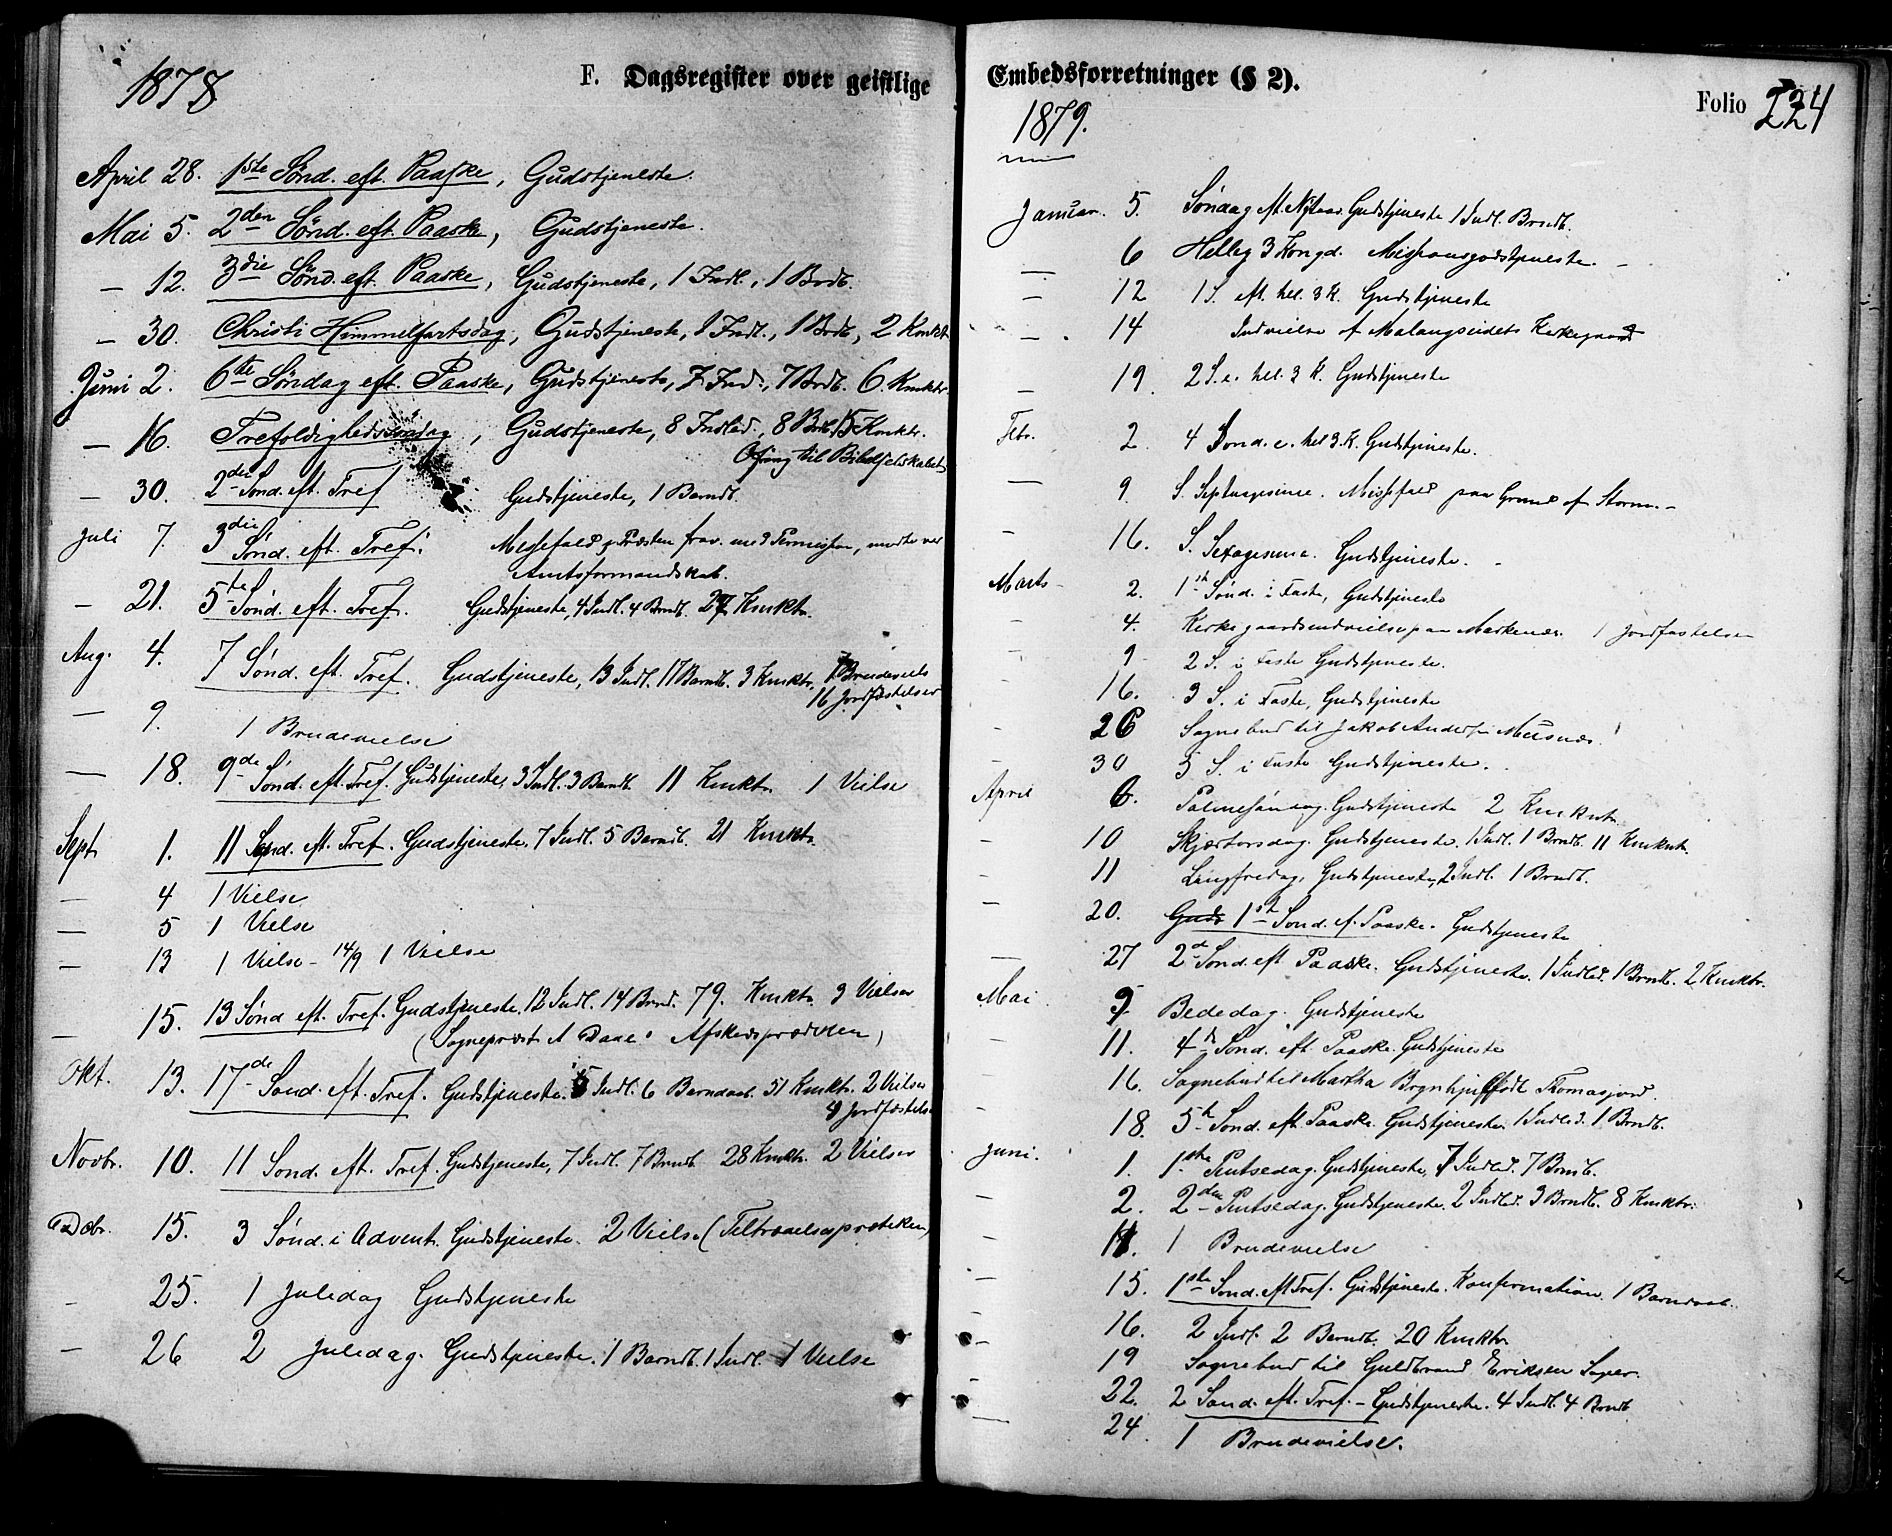 1878
F. Dagsregister over geistlige
April 28. 1ste Sønd. eft. Paaske, Gudstjeneste.
Mai 5. 2den Sønd. eft. Paaske, Gudstjeneste.
— 12. 3die Sønd. eft. Paaske, Gudstjeneste, 1 Indl., 1 Brdb.
— 30. Christi Himmelfartsdag, Gudstjeneste, 1 Indl., 1 Brdb, 2 Knkt
Juni 2. 6te Søndag eft. Paaske, Gudstjeneste, 7 Ind., 7 Brdb. 6. Kmktr.
— 16. Trefoldighedssøndag, Gudstjeneste, 8 Indled., 8 Brdb. 15 Konktr.
Ofring til Bibelselskabet
— 30. 2den Sønd. eft. Tref Gudstjeneste, 1 Barndb.
Juli 7. 3die Sønd. eft. Tref. Messefald, Præsten frav. med Permission, mødte ved
Amtsformandskab.
— 21. 5te Sønd. eft. Tref. Gudstjeneste, 4 Indl. 4 Brndb. 27 Kmktr.
Aug. 4. 7 Sønd. eft. Tref. Gudstjeneste, 13 Indl. 17 Barndb. 3 Kmktr, 1 Brudeviels
16 Jordfæstelser
— 9. 1 Brudevielse
— 18. 9de Sønd. eft. Tref. Gudstjeneste, 3 Indl. 3 Barndb. 11 Kmktr. 1 Vielse
Sept 1. 11 Sønd. eft. Tref. Gudstjeneste. 7 Indl. 5 Barndb. 21 Kmktr.
— 4 1 Vielse
— 5 1 Vielse
— 13 1 Vielse – 14/9 1 Vielse
— 15. 13 Sønd eft. Tref. Gudstjeneste, 12 Indl. 14 Brnd. 79. Kmktr. 3 Vielser
(Sogneprest A Daae's Afskedsprædiken)
Okt. 13. 17de Sønd. eft. Tref. Gudstjeneste. 5 Indl. 6 Barndaab. 51 Kmktr. 2 Vielser
4 Jordfæstelse
Novbr. 10. 11 Sønd. eft. Tref. Gudstjeneste, 7 Indl. 7 Brndb. 28 Kmktr. 2 Vielser
Decbr. 15. 3 Sønd. i Advent. Gudstjeneste. 2 Vielse (Tiltrædelsesprædiken)
– 25. 1 Juledag Gudstjeneste
— 26 2 Juledag. Gudstjeneste. 1 Barndb. 1 Indl. 1 Vielse
Embedsforretninger (§ 2).
Folio 224
1879.
Januar. 5. Søndag eft. Nytaar. Gudstjeneste 1 Indl. Brndb.
— 6 Hellig 3 Kongd. Missionsgudstjeneste. –
— 12 1 S. eft. hel. 3 K. Gudstjeneste
— 14 Indvielse af Malangseidets Kirkegaard
— 19. 2 S. e. hel. 3 K. Gudstjeneste
Febr. 2 4 Sønd. e. hel 3. K. Gudstjeneste.
— 9 S. Septuagesima. Messefald paa Grund af Storm. –
— 16. S. Sexagesima. Gudstjeneste. –
Marts 2. 1ste Sønd. i Faste, Gudstjeneste
– 4. Kirkegaardsindvielse paa 1 Jordfæstelse
– 9 2 S. i Faste Gudstjeneste.
– 16. 3 S. i Faste, Gudstjeneste
– 26 Sognebud til Jakob Andersen
– 30 5 S. i Faste Gudstjeneste.
April 6. Palmesøndag. Gudstjeneste 2 Kmkntr.
– 10 Skjærtorsdag. Gudstjeneste. 1 Indl. 1 Brndb. 11 Kmkntr.
– 11 Langfredag, Gudstjeneste, 2 Indl. 1 Brndb.
— 20. Guds 1ste Sønd. ef. Paaske. Gudstjeneste
— 27 2d Sønd. eft. Paaske. Gudstjeneste. 1 Indled. 1 Brndb. 2 Kmktr.
Mai. 9 Bededag. Gudstjeneste
– 11. 4de Sønd. eft. Paaske. Gudstjeneste
– 16. Sognebud til Martha født Thomasjord.
— 18. 5te Sønd. eft. Paaske. Gudstjeneste. 1 Indled. 1 Brndb.
Juni. 1. 1ste Pintsedag. Gudstjeneste, 7 Indled. 7 Brndb.
— 2. 2den Pintsedag. Gudstjeneste. 2 Indled. 3 Brndb. 8 Kmktr.
— 11. 1 Brudevielse
— 15. 1ste Sønd. eft Tref. Gudstjeneste. Konfirmation. 1 Barndaab.
— 16. 2 Indl. 2 Barndb. 20 Kmktr.
— 19 Sognebud til Guldbrand Eriksen
— 22. 2 Sønd. eft. Tref. – Gudstjeneste. 4 Indl. 4 Brndb
— 24. 1 Brudevielse.